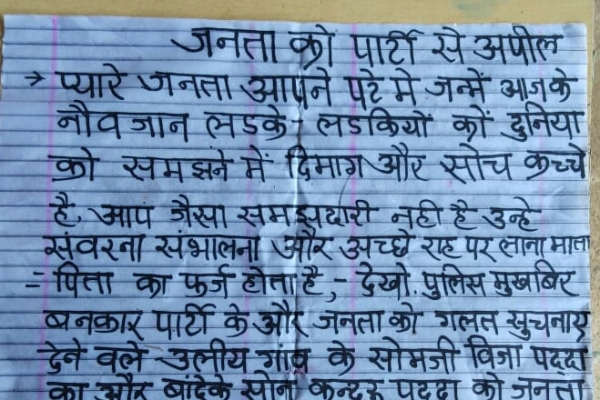 जनता को पार्टी से अपील
→ प्यारे जनता आपने परे मे जन्में आजके
नौवजान लडके - लडकियों को दुनिया
को समझने में दिमाग और सोच कच्चे
है, आप जैसा समझदारी नही है उन्हे
संवरना संभालना और अच्छे राह पर लाना माता
= पिता का फर्ज होता है,- देखो. पुलिस मुखबिर
बनकार पार्टी के और जनता को गलत सुचनाए
देने वले उलीय गाव के सोमजी विजा पददा
का और बांदेके सोना कन्दरू पददा को जनता